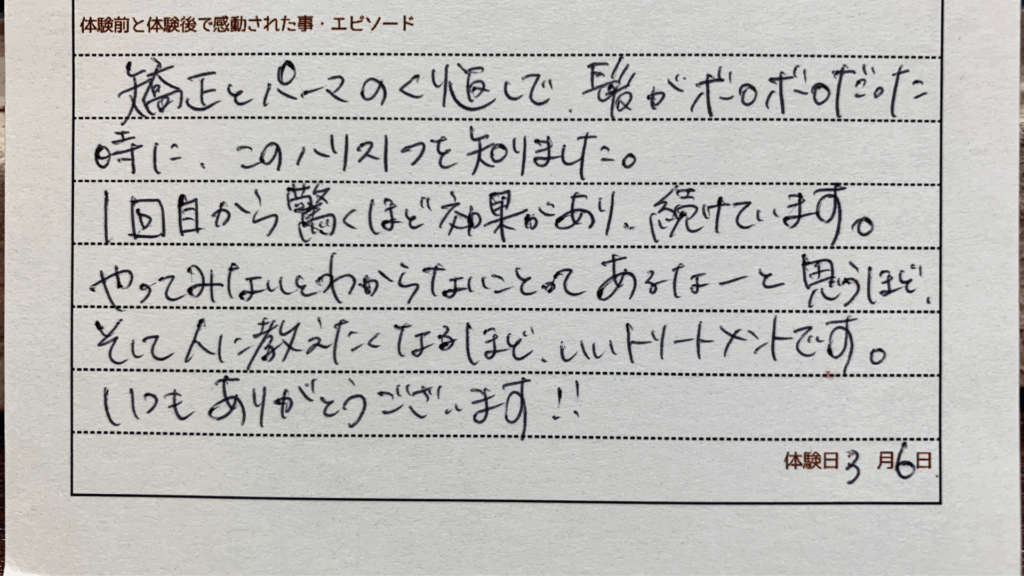 体験前と体験後で感動された事・エピソード
矯正とパーマのくり返しで、髪がボロボロだった
時に、このハリストつを知りました。
1回目から驚くほど効果があり、続けています。
やってみないとわからないことってあるなーと思うほど、
そして人に教えたくなるほど、いいトリートメントです。
いつもありがとうございます!!
体験日3月6日